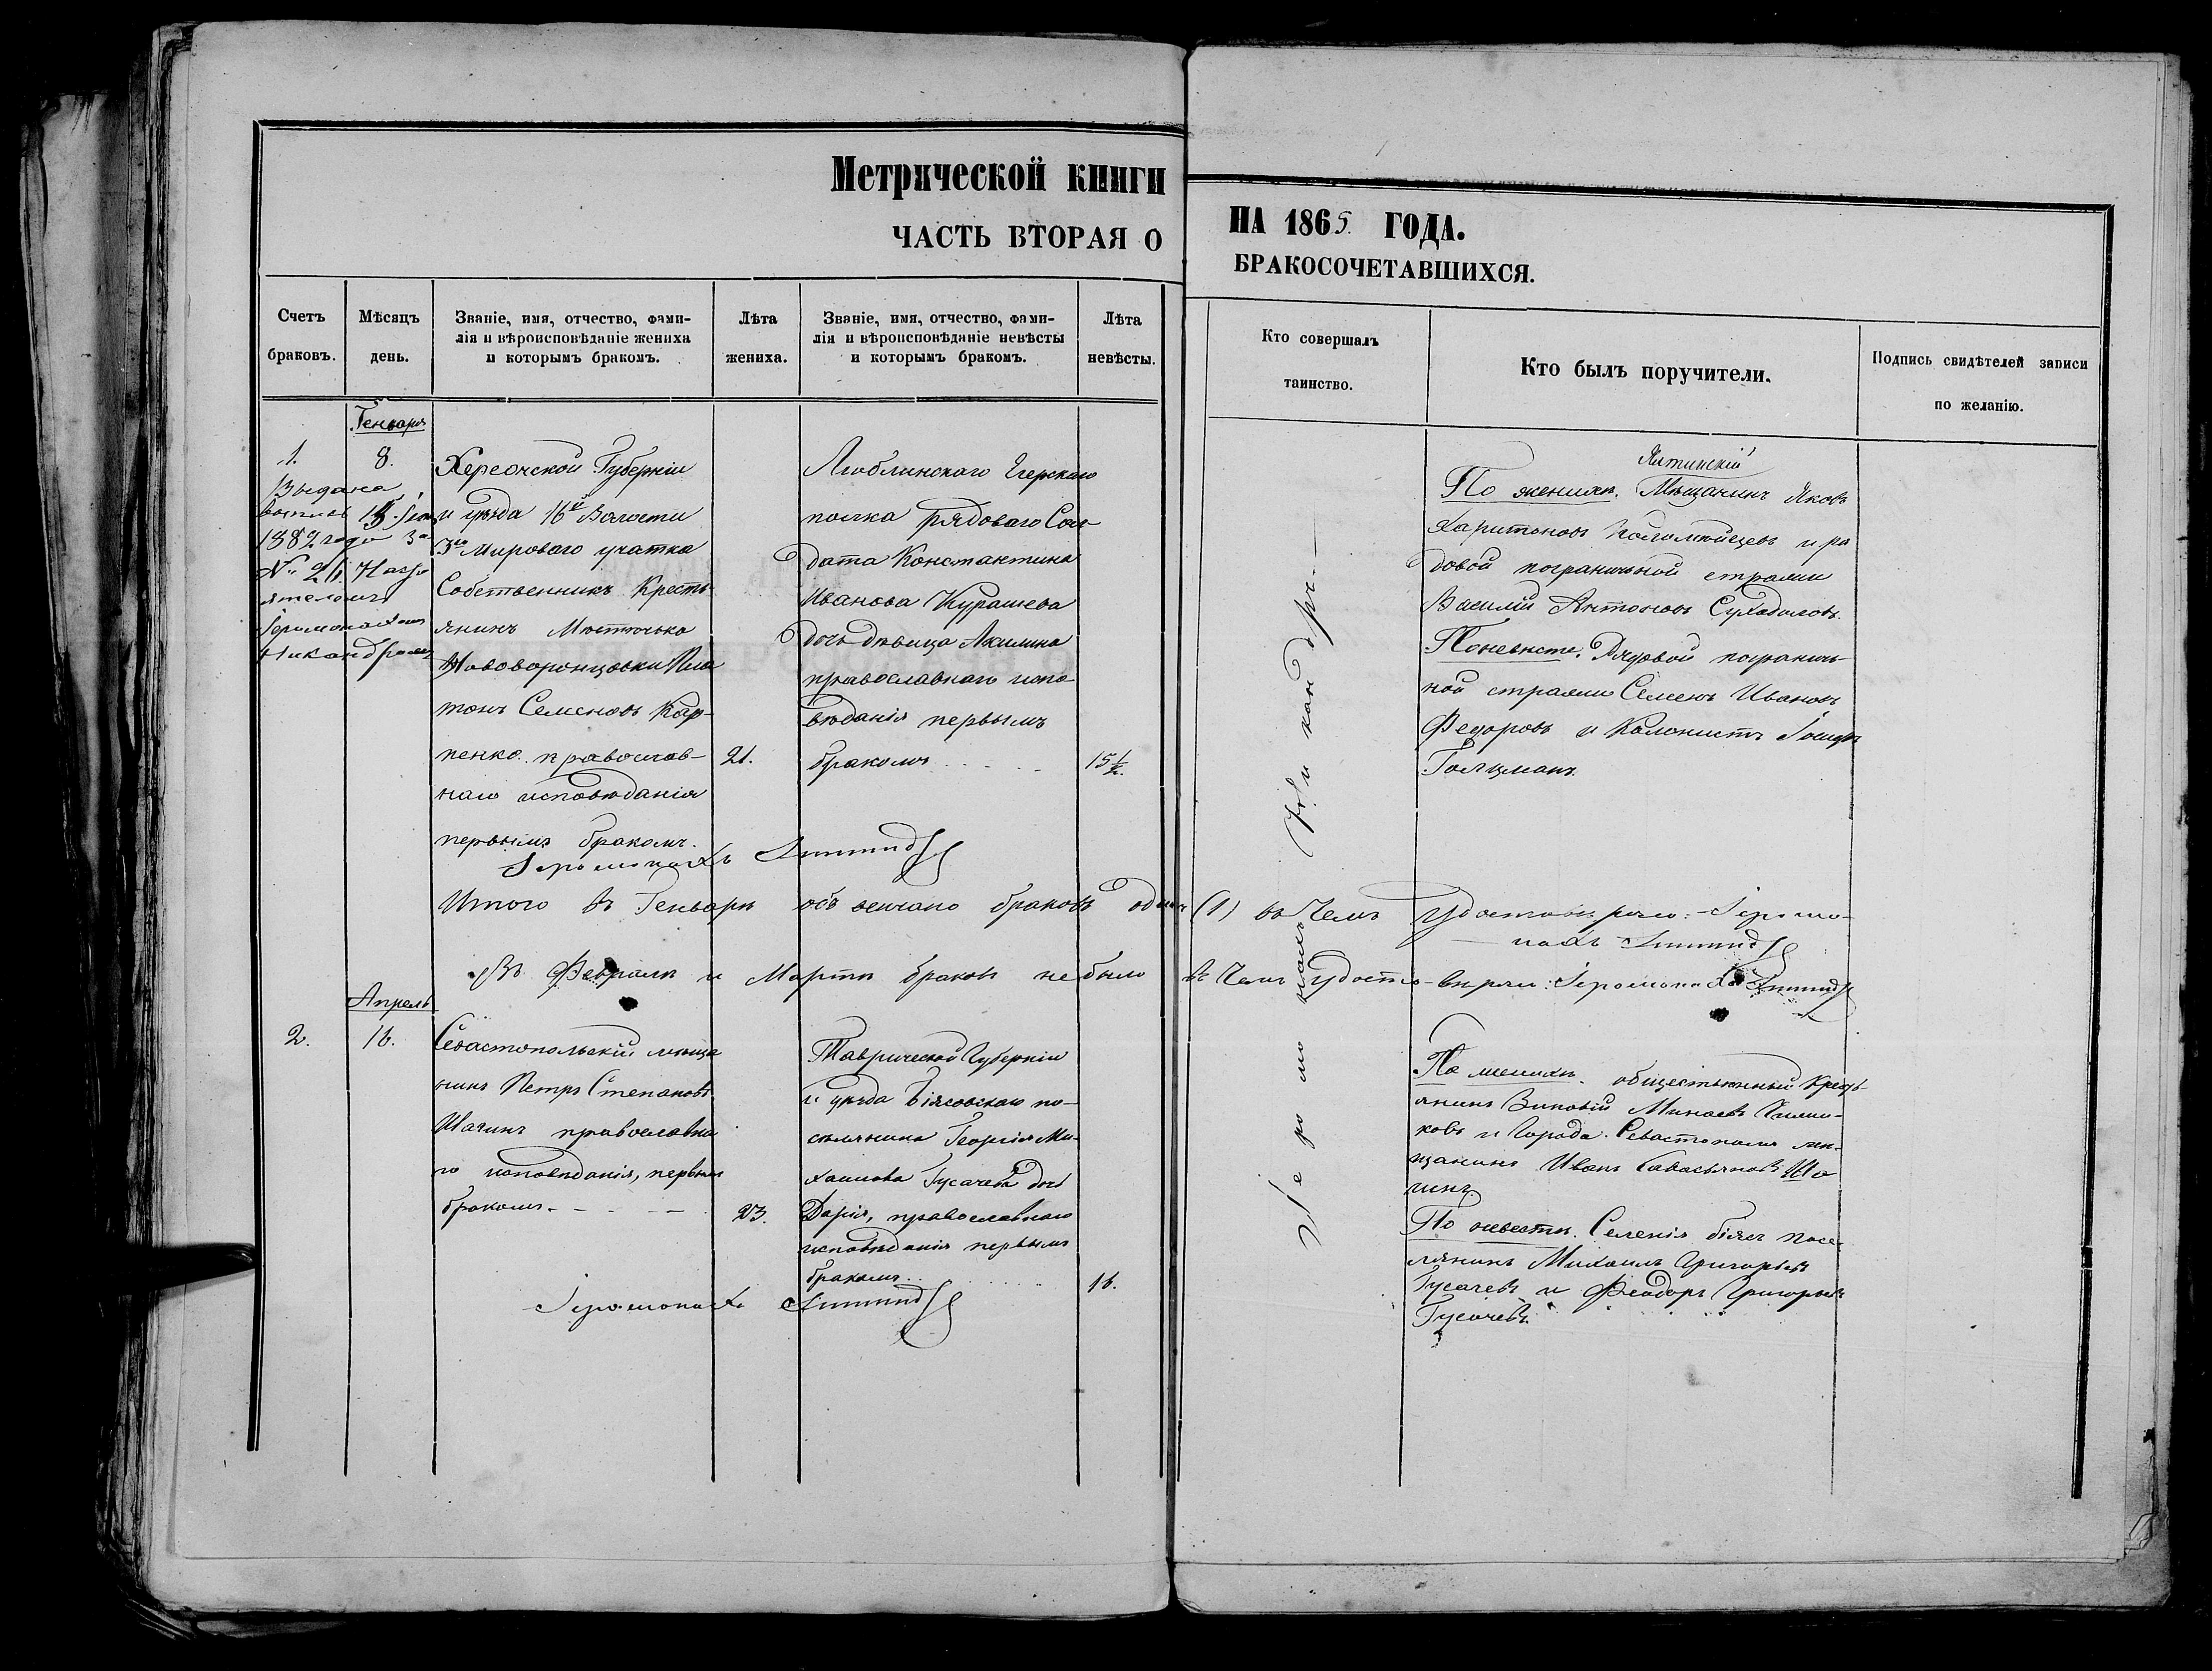 Метрической книги
ЧАСТЬ ВТОРАЯ О
НА 1865 ГОДА.
БРАКОСОЧЕТАВШИХСЯ.
Счетъ браковъ.
Мѣсяцъ день.
Званіе, имя, отчество, фами-
лія и вѣроисповѣданіе жениха
и которымъ бракомъ.
Лѣта жениха.
Званіе, имя, отчество, фами-
лія и вѣроисповѣданіе невѣсты
и которымъ бракомъ.
Лѣта невѣсты.
Кто совершалъ
таинство.
Кто былъ поручители.
Подпись свидѣтелей записи
по желанію.
Генварь
1.
8.
Выдана
1882 года за
№ 26 Насто
ятелемъ
Іеромонахомъ
Никандромъ
Херсонской Губерніи
и уѣзда 16й Волости
3го Мироваго учатка
Собственникъ Кресть-
янинъ Мѣстечька
Нововоронцовки Пла
тонъ Семеновъ Кар-
пенко православ-
наго исповѣданія
первымъ бракомъ.
21.
Люблинскаго Егерскаго
полка рядоваго Сол-
дата Константина
Иванова Курашева
дочь дѣвица Акилина
православнаго испо-
вѣданія первымъ
бракомъ
15½.
Іеромонахъ Никандръ
Ялтинскій
По женихѣ. Мѣщанинъ Яковъ
Харитоновъ Коломѣйцевъ и ря
довой пограничьной стражи
Василій Антоновъ Суходоловъ.
Поневѣсте. Рядовой погранич-
ной стражи Семенъ Ивановъ
Федоровъ и Колонистъ Іосифъ
Гольцманъ.
Іеромонахъ
Итого въ Генварѣ объвенчано браковъ одинъ (1) въ чемъ удостовѣряю: Іеромо-
нахъ
Въ Февралѣ и Мартѣ браковъ небыло въ чемъ удосто-вѣряю: Іеромонахъ
Апрель
2.
16.
Севастопольскій мѣща
нинъ Петръ Степановъ
Шагинъ православна
го исповѣданія, первымъ
бракомъ
23.
Таврической Губерніи
и уѣзда Біясовскаго по-
сѣлянина Георгія Ми-
хаилова Гусачева дочь
Дарія, православнаго
исповѣданія первымъ
бракомъ
16.
По женихѣ. общественный Крест-
янинъ Зиновій Минаевъ
ковъ и Города Севастополя мѣ-
щанинъ Иванъ Савасьяновъ Ша
гинъ
По невестѣ. Селенія біясъ посе-
лянинъ Михаилъ Григорьевъ
Гусачевъ и Феодоръ Григорьевъ
Гусачевъ.
Іеромонахъ